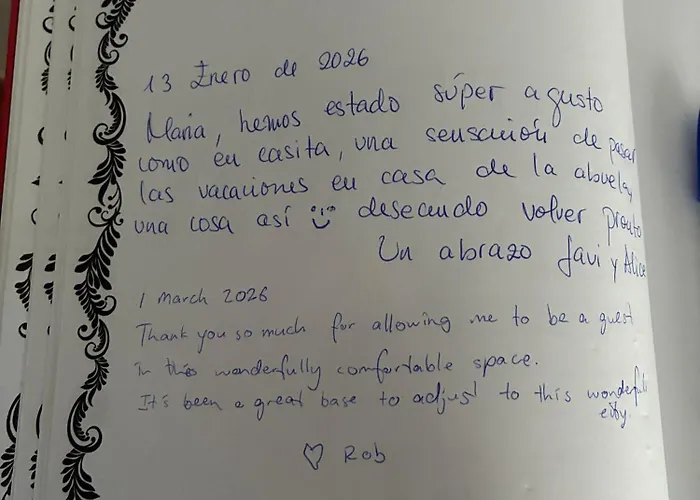 13 Enero de 2026
Maria, hemos estado súper a gusto
como en casita, una sensación de pasar
las vacaciones en casa de la abuela,
una cosa así desecundo volver pronto
Un abrazo Javi y Alice
1 March 2026
Thank you so much for allowing me to be a guest
in this wonderfully comfortable space.
It's been a great base to adjust to this wonderful
city.
♡ Rob